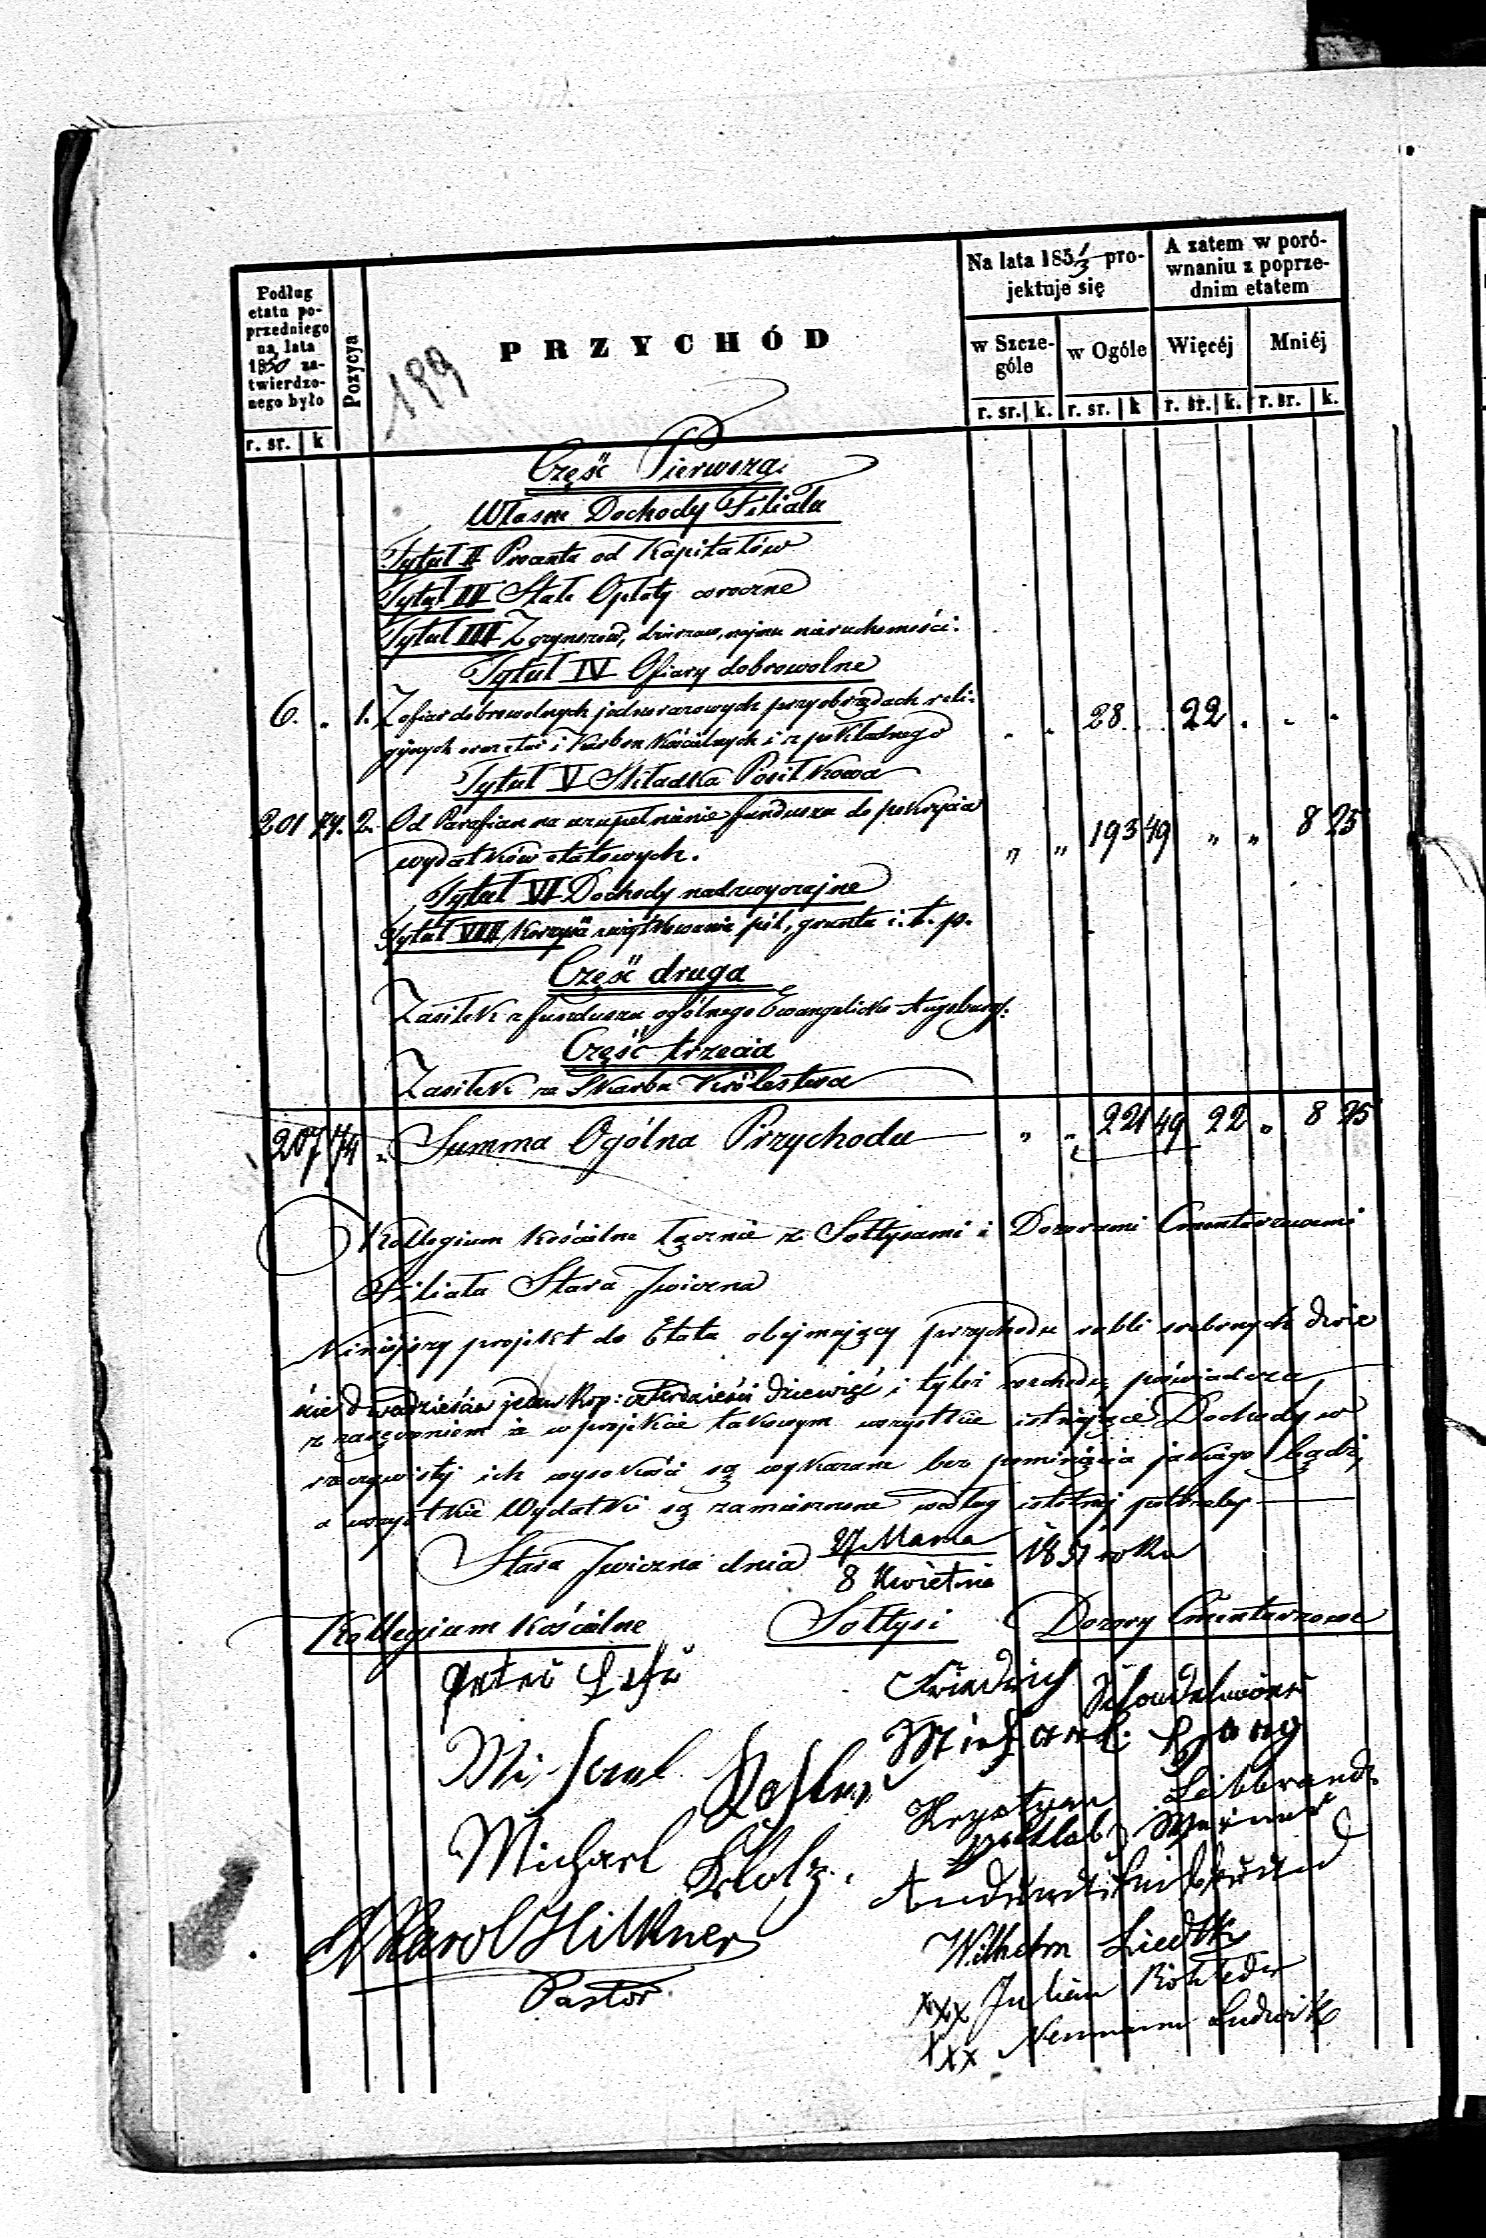 Podług etatu poprzedniego na lata 1850 zatwierdzonego było
r. sr. k
Pozycya
199
PRZYCHÓD
Na lata 185 1/3 projektuje się
w Szczególe
w Ogóle
A zatem w porównaniu z poprzednim etatem
Więcéj
Mniéj
r. sr. k. r. sr. k r. sr. k. r. sr. k.
Część Pierwsza.
Własne Dochody Filiału
Tytuł II Procenta od Kapitałów
Tytuł III Stałe Opłaty coroczne
Tytuł III Z czynszów, dzierżaw, najmu nieruchomości.
Tytuł IV Ofiary dobrowolne
6. „ 1. Z ofiar dobrowolnych jednorazowych przy obrzędach reli- „ „ 28 „ 22 „ „ „
gijnych oraz z tac i Karbon Kościelnych i z pokładnego
Tytuł V Składka Posiłkowa
201 74. 2. Od Parafian na uzupełnienie funduszu do pokrycia „ „ 193 49 „ „ 8 25
wydatków etatowych.
Tytuł VI Dochody nadzwyczajne
Tytuł VIII Korzyści z użytkowania pól, gruntu i. t. p.
Część druga
Zasiłek z funduszu ogólnego Ewangelicko Augsburg:
Część trzecia
Zasiłek ze Skarbu Królestwa
207 74 „ Summa Ogólna Przychodu „ „ 221 49 22 „ 8 25
Kollegium Kościelne łącznie z Sołtysami i Dozorami Cmentarzowemi
Filiału Stara Iwiczna
Niniejszy projekt do Etatu obejmujący przychodu rubli srebrnych dwie
ście dwadzieścia jeden kop: czterdzieści dziewięć i tyleż rozchodu, poświadcza,
z zaręczeniem iż w projekcie takowym wszystkie istniejące Dochody w
rzeczywistej ich wysokości są wykazane bez pominięcia jakiego bądź,
a wszystkie Wydatki są zamieszczone według istotnej potrzeby
Stara Iwiczna dnia 27 Marca / 8 Kwietnia 1851 roku
Kollegium Kościelne Sołtysi Dozory Cmentarzowe
Peter
Friedrich
Michael
Michael
Krystyan Leibbrandt
Gottlob Werner
Michael Klotz.
Wilhelm Liedtke
Karol Hilkner
Pastor
xxx Julian
xxx Neumann Ludwik